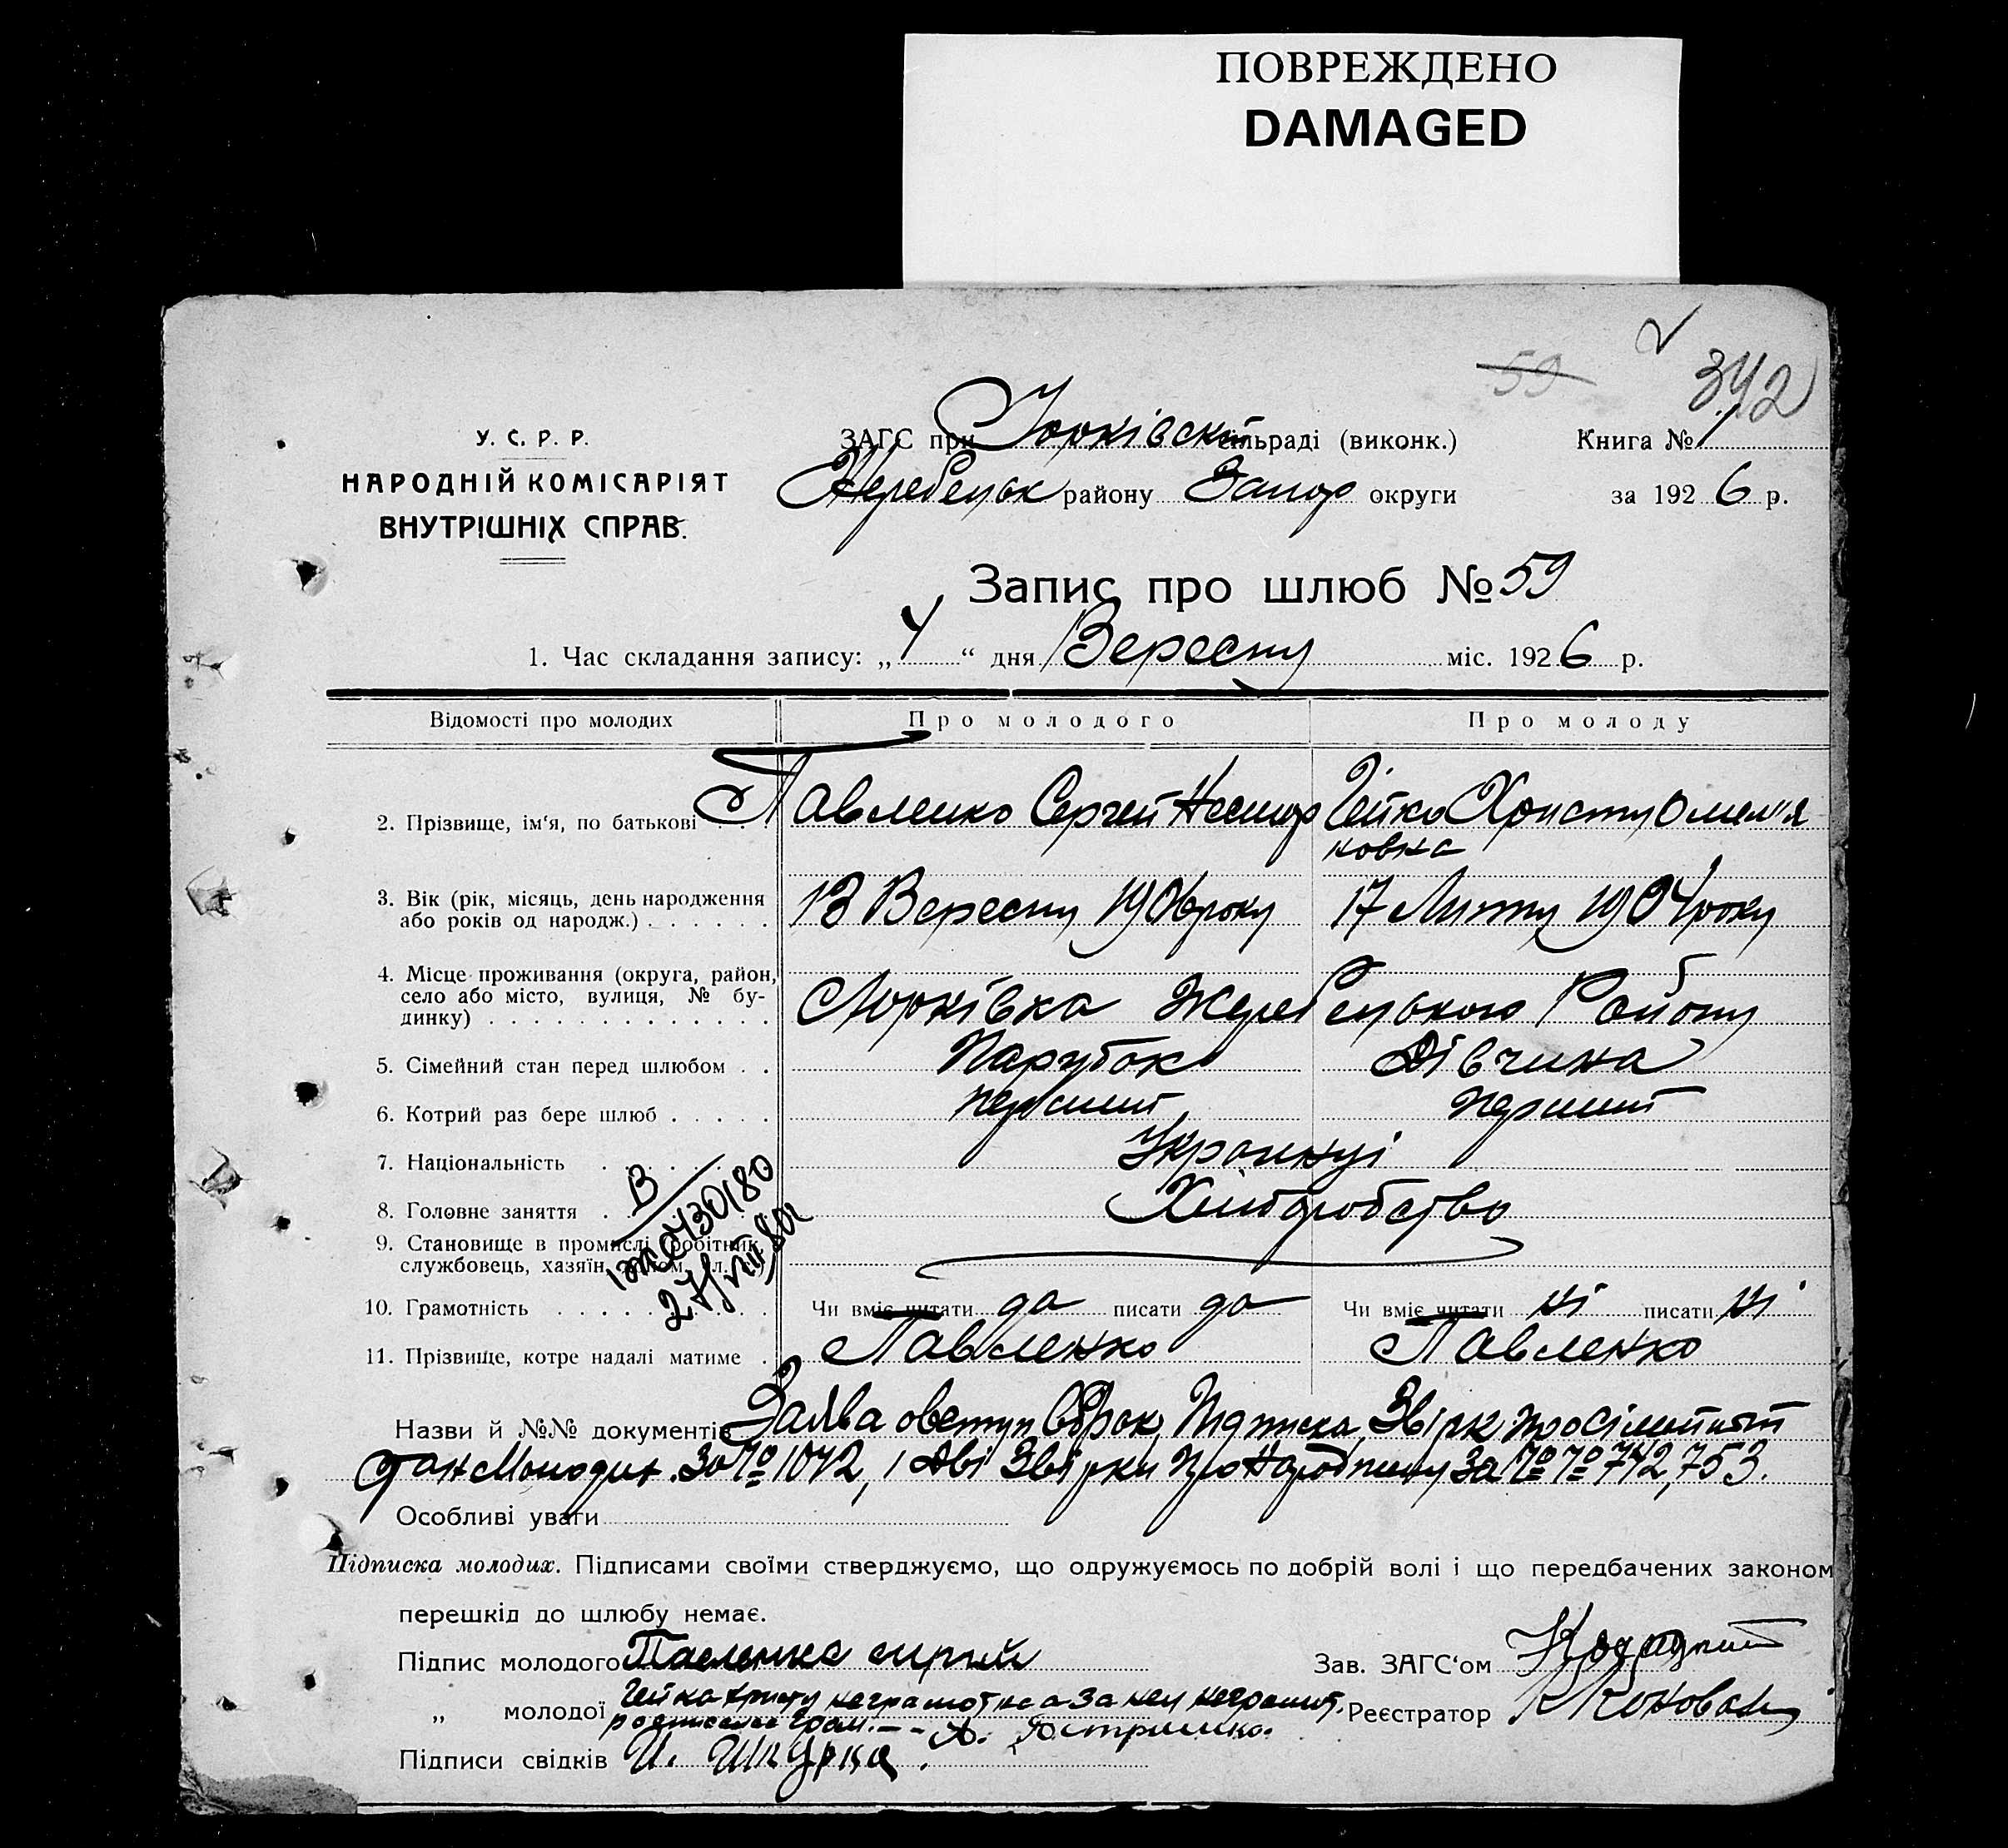 ПОВРЕЖДЕНО
DAMAGED
59
342
У. С. Р. Р.
НАРОДНІЙ КОМІСАРІЯТ
ВНУТРІШНІХ СПРАВ.
ЗАГС при Юрківскій сільраді (виконк.) Книга № 1
Жеребецьк району Запор округи за 1926 р.
Запис про шлюб № 59
1. Час складання запису: „4“ дня Вересну міс. 1926 р.
Відомості про молодих Про молодого Про молоду
2. Прізвище, ім'я, по батькові . . . Павленко Сергей Нестор Гейко Христу Омел'я
новна
3. Вік (рік, місяць, день народження
або років од народж.) . . . . . . 13 Вересну 1906 року 17 Лютту 1904 року
4. Місце проживання (округа, район,
село або місто, вулиця, № бу-
динку) . . . . . . . . . . . . . Юрківка Жеребецького Району
5. Сімейний стан перед шлюбом . . Парубок Дівчина
6. Котрий раз бере шлюб . . . . . перший перший
7. Національність . . . . . . Українці
8. Головне заняття . . . . . . Хліборобство
9. Становище в промислі (робітник,
службовець, хазяїн,
В
430180
27/VIII 80
10. Грамотність . . . . . . . . . Чи вміє читати да писати да Чи вміє читати ні писати ні
11. Прізвище, котре надалі матиме . Павленко Павленко
Назви й №№ документів Заява о вступ Оброк, Підписка, Звірк про сімейний
стан Молодих За № 1042, і Дві Звірки про Народжену За №№ 742, 753.
Особливі уваги
Підписка молодих. Підписами своїми стверджуємо, що одружуємось по добрій волі і що передбачених законом
перешкід до шлюбу немає.
Підпис молодого Павленко сиргий Зав. ЗАГС'ом
„ молодої Гейка Христу неграмотна а за неи неграмот. Реєстратор К Коновал
росписался Грам. - - А. Востришко.
Підписи свідків И. Шкурка.